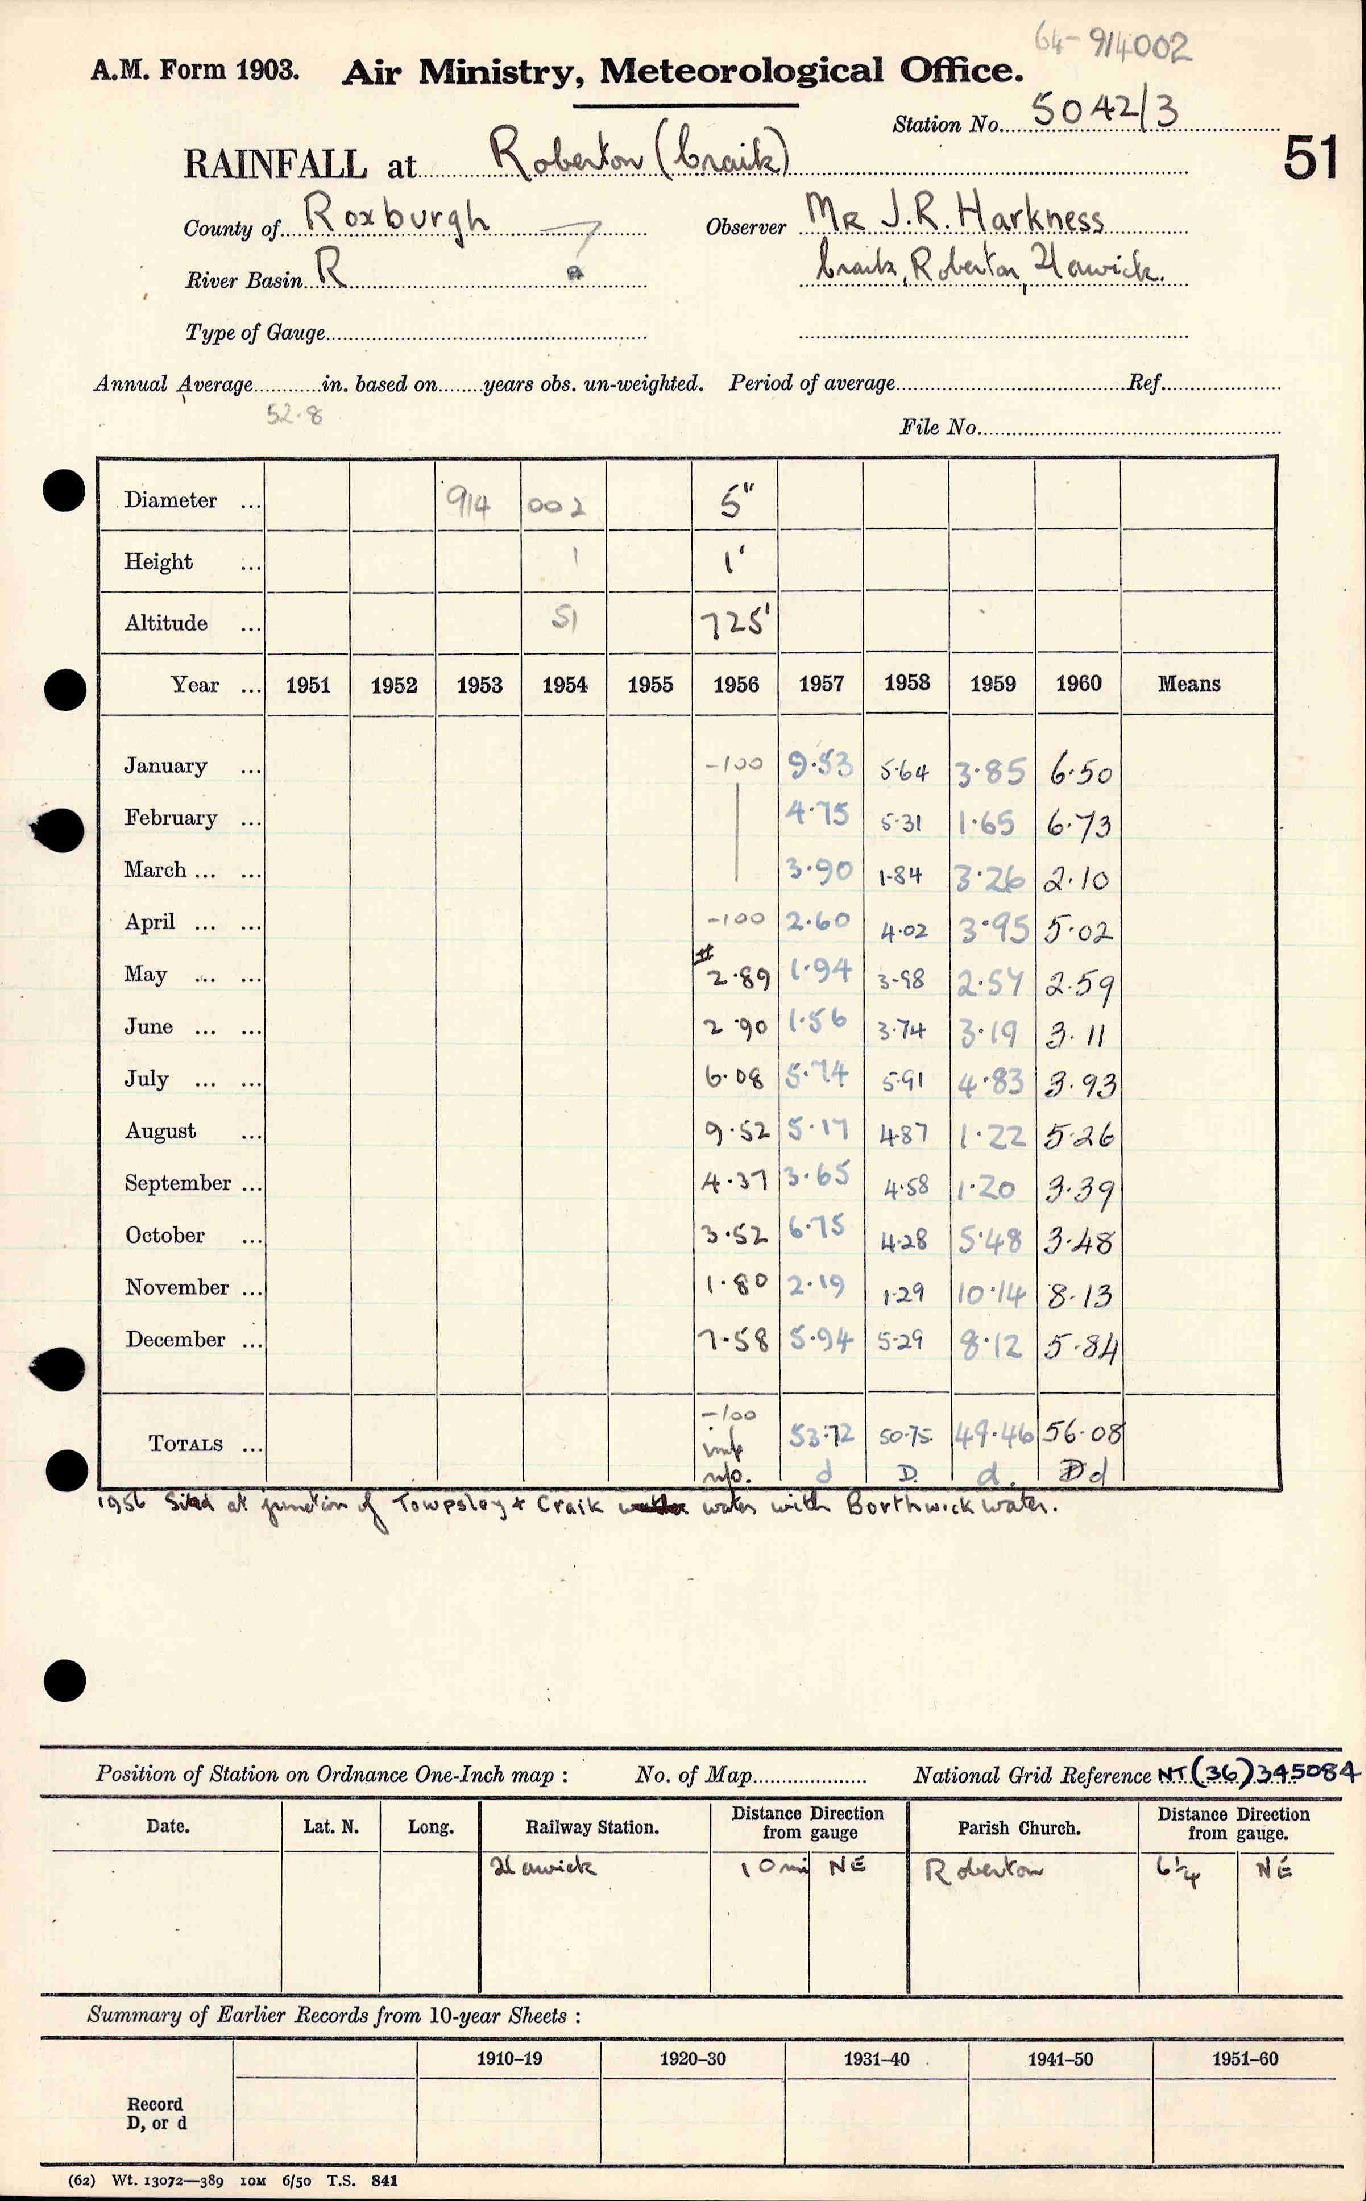 64-914002
A.M. Form 1903. Air Ministry, Meteorological Office.
Station No. 5042/3
51
RAINFALL at Roberton (Craik)
County of Roxburgh Observer MR J.R. Harkness
River Basin R Craik, Roberton, Hawick.
Type of Gauge
Annual Average in. based on years obs. un-weighted. Period of average Ref.
52.8
File No.
Diameter ... 914 002 5"
Height ... 1 1'
Altitude ... 51 725'
Year ... 1951 1952 1953 1954 1955 1956 1957 1958 1959 1960 Means
January ... -100 9.53 5.64 3.85 6.50
February ... 4.75 5.31 1.65 6.73
March ... ... 3.90 1.84 3.26 2.10
April ... ... -100 2.60 4.02 3.95 5.02
May ... ... # 2.89 1.94 3.98 2.57 2.59
June ... ... 2.90 1.56 3.74 3.19 3.11
July ... ... 6.08 5.74 5.91 4.83 3.93
August ... 9.52 5.17 4.87 1.22 5.26
September ... 4.37 3.65 4.58 1.20 3.39
October ... 3.52 6.75 4.28 5.48 3.48
November ... 1.80 2.19 1.29 10.14 8.13
December ... 7.58 5.94 5.29 8.12 5.84
-100
TOTALS ... 53.72 50.75 49.46 56.08
d D. d. D d
1956 Sited at junction of Towpsley + Craik water with Borthwick water.
Position of Station on Ordnance One-Inch map : No. of Map National Grid Reference NT (36) 345084
Date. Lat. N. Long. Railway Station. Distance Direction from gauge Parish Church. Distance Direction from gauge.
Hawick 10 mi NE Roberton 6¼ NE
Summary of Earlier Records from 10-year Sheets :
1910–19 1920–30 1931–40 1941–50 1951–60
Record
D, or d
(62) Wt. 13072—389 10M 6/50 T.S. 841